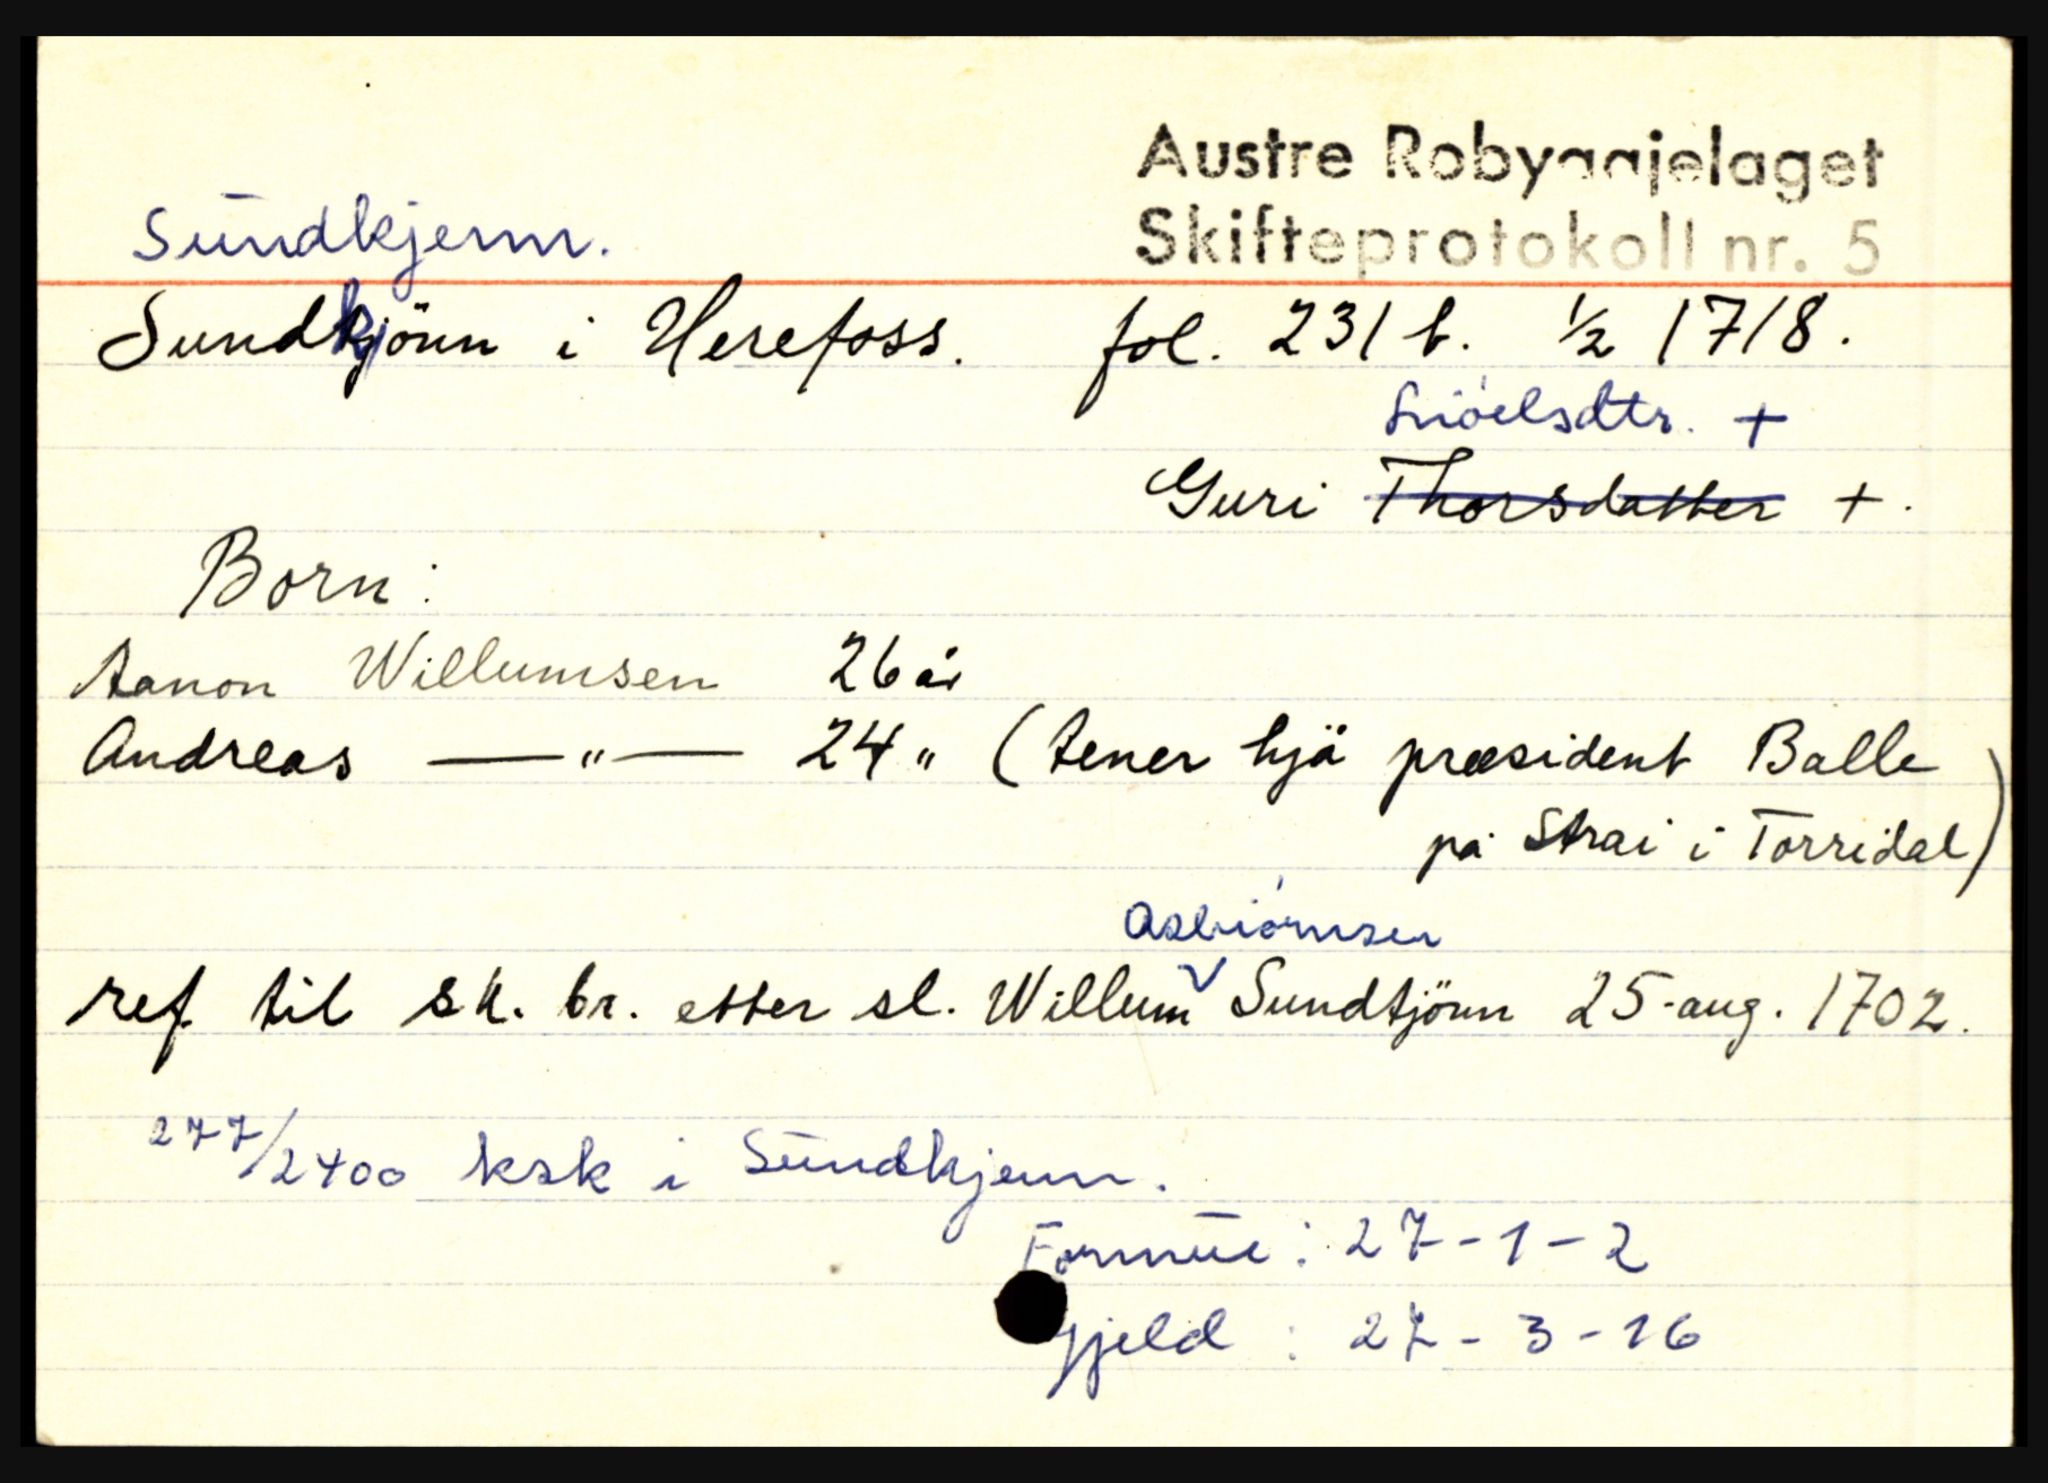 Austre Robyggjelaget
Skifteprotokoll nr. 5
Sundkjenn.
Sundkjönn i Herefoss. fol. 231 b. 1/2 1718.
Sniöelsdtr. +
Guri Thorsdatter +.
Born:
Aanon Willumsen 26 år
Andreas —"— 24 " (tener hjå præsident Balle
på Strai i Torridal)
Asbiörnsen
ref til sk. br. etter sl. Willum Sundtjönn 25-aug. 1702.
277/2400 ksk i Sundkjenn.
Formue: 27-1-2
Gjeld : 27-3-16